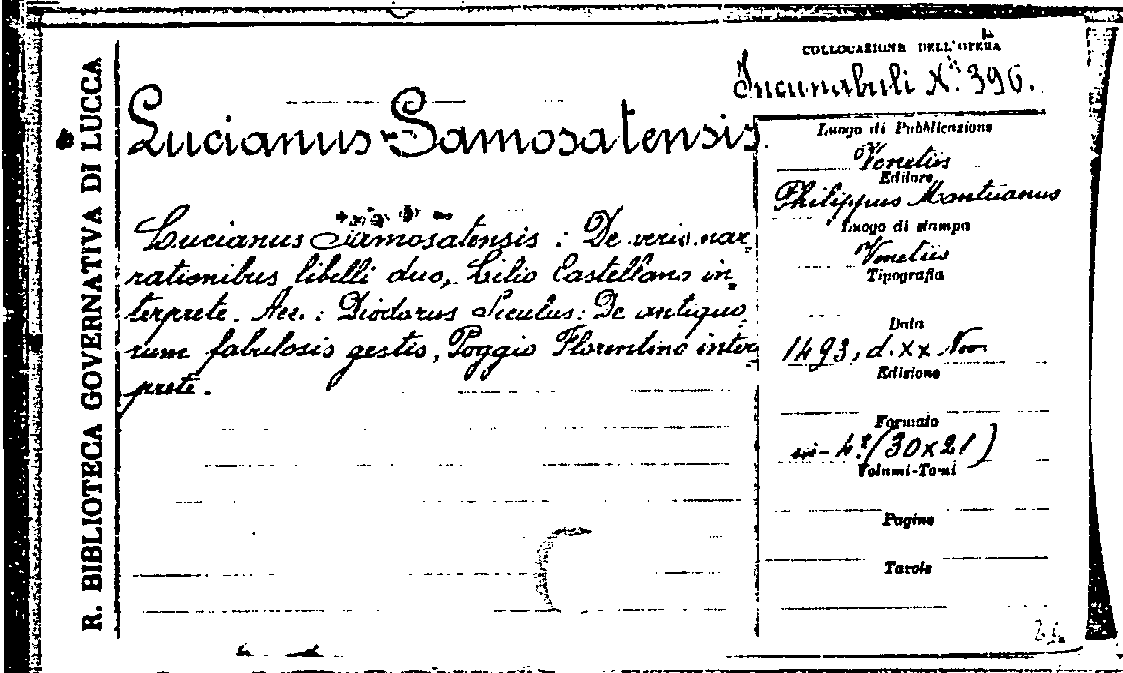 R. BIBLIOTECA GOVERNATIVA DI LUCCA
COLLOCAZIONE DELL'OPERA
Incunabuli N. 396.
Lucianus Samosatensis.
Lucianus Samosatensis : De veris nar-
rationibus libelli duo, Lilio Castellano in-
terprete. Acc. : Diodorus Siculus : De antiquo-
rum fabulosis gestis, Poggio Florentino inter-
prete.
Luogo di Pubblicazione
Venetiis
Editore
Philippus Mantuanus
Luogo di stampa
Venetiis
Tipografia
Data
1493, d. XX Nov.
Edizione
Formato
in-4.° (30x21)
Volumi-Tomi
Pagine
Tavole